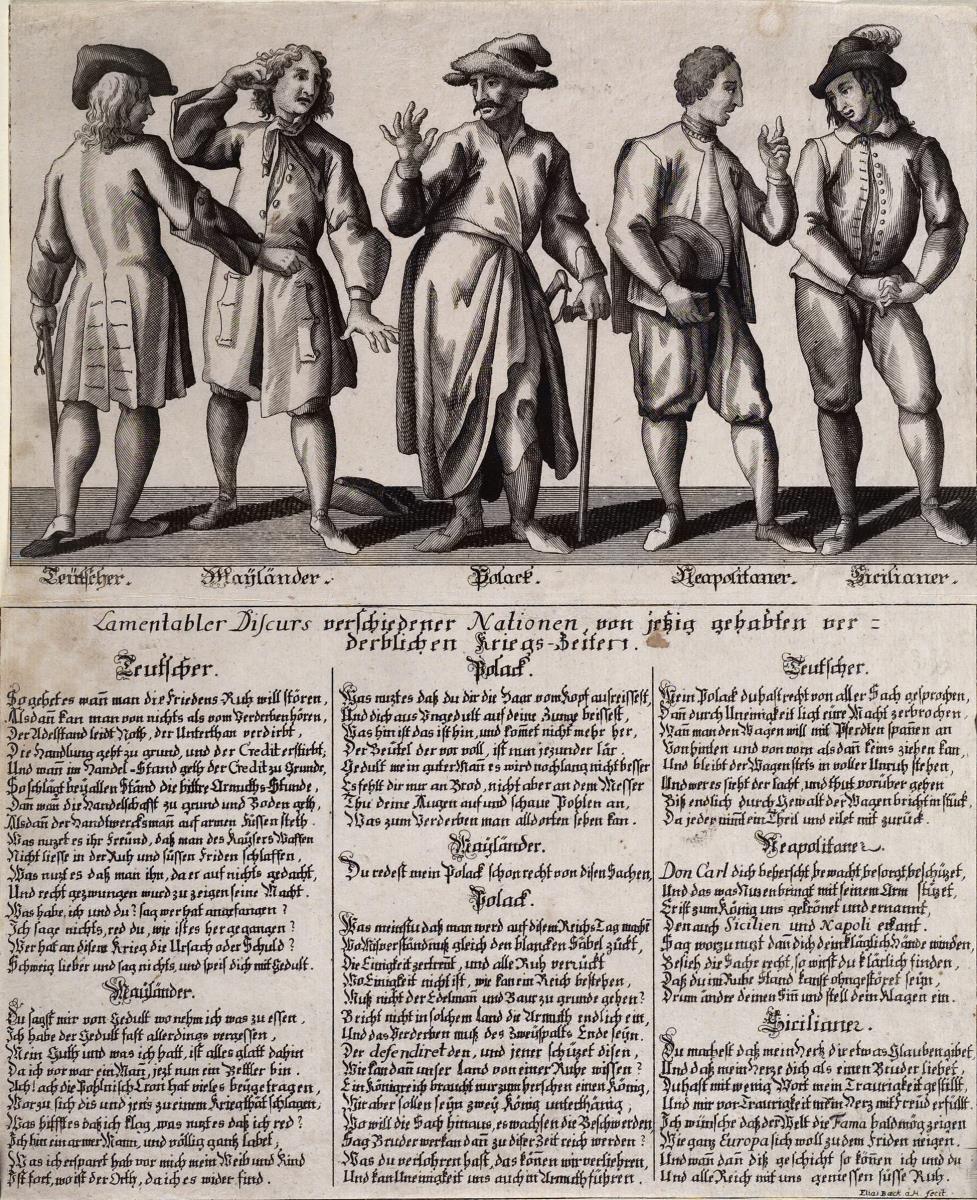 Teütscher.
Mayländer.
Polack.
Neapolitaner.
Sicilianer.
Lamentabler Discurs verschiedener Nationen, von jetzig gehabten ver=
derblichen Kriegs-Zeiten.
Teutscher.
So gehet es wañ man die Friedens Ruh will stören,
Alsdañ kan man von nichts als vom Verderben hören,
Der Adelstand leidt Noth, der Unterthan verdirbt,
Die Handlung geht zu grund, und der Credit erstirbt,
Und wañ im Handel-Stand geth der Credit zu Grunde,
So schlägt bey allen Stand die bittre Armuths-Stunde,
Dan wan die Handelschafft zu grund und Boden geth,
Alsdañ der Handtwercksmañ auf armen Füssen steth.
Was nuzet es ihr Freünd, daß man des Kaysers Waffen
Nicht liesse in der Ruh und süssen Friden schlaffen,
Was nuzt es daß man ihn, da er auf nichts gedacht,
Und recht gezwungen wurd zu zeigen seine Macht.
Was habe, ich und du? sag wer hat angefangen?
Ich sage nichts, red du, wie ist es hergegangen?
Wer hat an disem Krieg die Ursach oder Schuld?
Schweig lieber und sag nichts, und speis dich mit Gedult.
Mayländer.
Du sagst mir von Gedult wo nehm ich was zu essen,
Ich habe der Gedult fast allerdings vergessen,
Mein Guth und was ich hatt, ist alles glatt dahin
Da ich vor war ein Mañ, jezt nun ein Bettler bin.
Ach! ach die Pohlnisch Cron hat vieles beygetragen,
Worzu sich dis und jens zu einem Krieg thät schlagen,
Was hilfft es daß ich klag, was nuzt es daß ich red?
Ich bin ein armer Mann, und völlig gantz labet,
Was ich ersparet hab vor mich mein Weib und Kind
Ist fort, wo ist der Orth, da ich es wider find.
Polack.
Was nuzt es daß du dir die Haar vom Kopf ausreissest,
Und dich aus Ungedult auf deine Zunge beissest,
Was hin ist das ist hin, und kom̃et nicht mehr her,
Der Beutel der vor voll, ist nun jezunder lär.
Gedult mein guter Mañ es wird noch lang nicht besser
Es fehlt dir nur an Brod, nicht aber an dem Messer
Thu deine Augen auf und schaue Pohlen an,
Was zum Verderben man alldorten sehen kan.
Mayländer.
Du redest mein Polack schon recht von disen Sachen,
Polack.
Was meinstu daß man werd auf disem Reichs Tag machẽ
Wo Misverständnuß gleich den blancken Säbel zückt,
Die Einigkeit zertrent, und alle Ruh verrückt
Wo Einigkeit nicht ist, wie kan ein Reich bestehen,
Muß nicht der Edelman und Baur zu grunde gehen?
Bricht nicht in solchem Land die Armuth endlich ein,
Und das Verderben muß des Zweyspalts Ende seyn.
Der defendiret den, und jener schüzet disen,
Wie kan dañ unser Land von einer Ruhe wissen?
Ein Königreich braucht nur zum herschen einen König,
Wir aber sollen seyn zwey König unterthänig,
Wo will die Sach hinaus, es wachsen die Beschwerden,
Sag Bruder wer kan dañ zu diser Zeit reich werden?
Was du verlohren hast, das könen wir verliehren,
Und kan Uneinigkeit uns auch in Armuth führen.
Teutscher.
Mein Polack du hast recht von aller Sach gesprochen,
Dañ durch Uneinigkeit ligt eine Macht zerbrochen,
Wan man den Wagen will mit Pferdten spañen an
Von hinten und von vorn alsdañ keins ziehen kan,
Und bleibt der Wagen stets in voller Unruh stehen,
Und wer es sieht der lacht, und thut vorüber gehen
Biß endlich durch Gewalt der Wagen bricht in stück,
Da jeder nim̃t ein Theil und eilet mit zurück.
Neapolitaner.
Don Carl dich beherscht bewacht besorgt beschüzet,
Und das was Nuzen bringt mit seinem Arm stüzet,
Er ist zum König uns gekrönet und ernannt,
Den auch Sicilien und Napoli erkant.
Sag worzu nuzt dan dich dein kläglich Hände winden,
Besieh die Sache recht, so wirst du klärlich finden,
Daß du im Ruhe Stand kanst ohngestöret seyn,
Drum ändre deinen Siñ und stell dein Klagen ein.
Sicilianer.
Du machest daß mein Hertz dir etwas Glauben gibet,
Und daß mein Herze dich als einen Bruder liebet,
Du hast mit wenig Wort mein Traurigkeit gestillt,
Und mir vor Traurigkeit mein Herz mit Freüd erfüllt.
Ich wünsche daß der Welt die Fama bald mög zeigen
Wie ganz Europa sich woll zu dem Friden neigen.
Und wañ dañ diß geschicht so könen ich und du
Und alle Reich mit uns geniessen süsse Ruh.
Elias Back a.H. fecit.